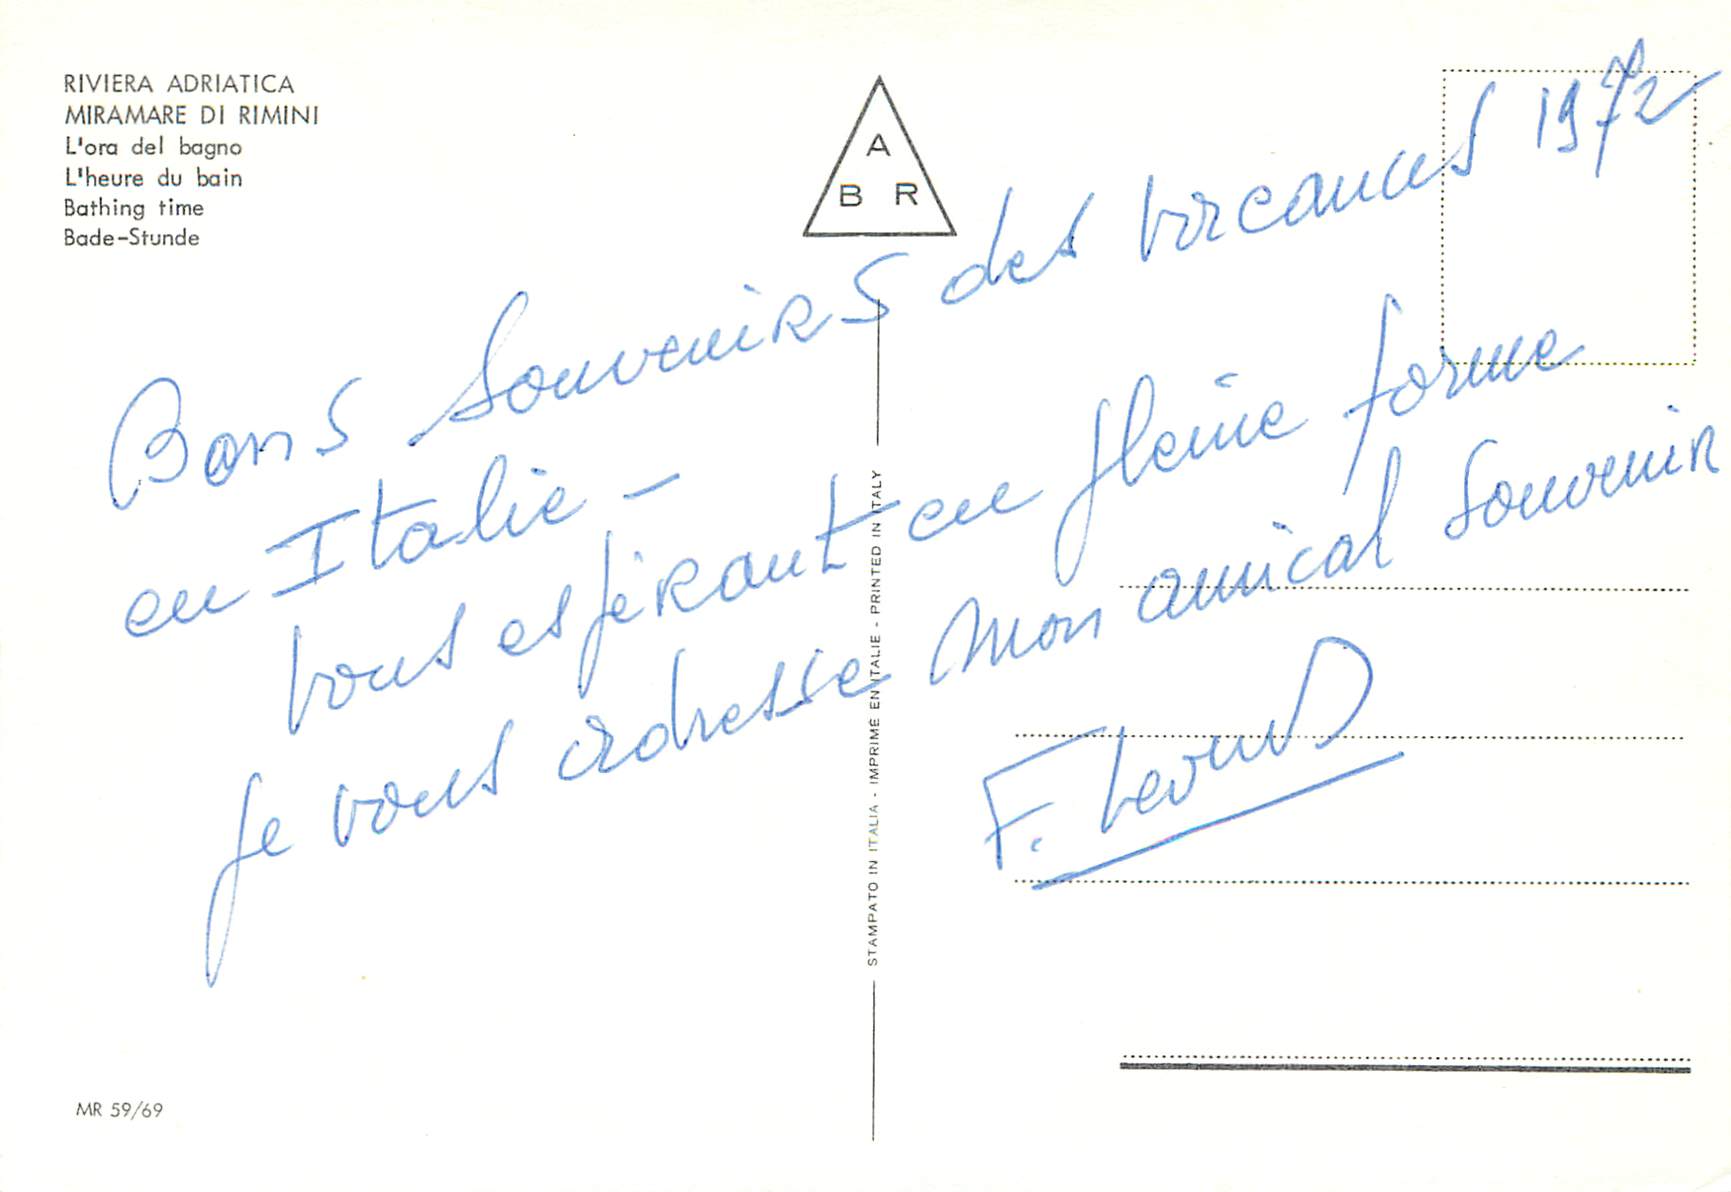 RIVIERA ADRIATICA
MIRAMARE DI RIMINI
L'ora del bagno
L'heure du bain
Bathing time
Bade-Stunde
A
B R
Bons Souvenirs des vacances 1972
en Italie -
vous espérant en pleine forme
je vous adresse mon amical souvenir
F.
STAMPATO IN ITALIA - IMPRIMÉ EN ITALIE - PRINTED IN ITALY
MR 59/69